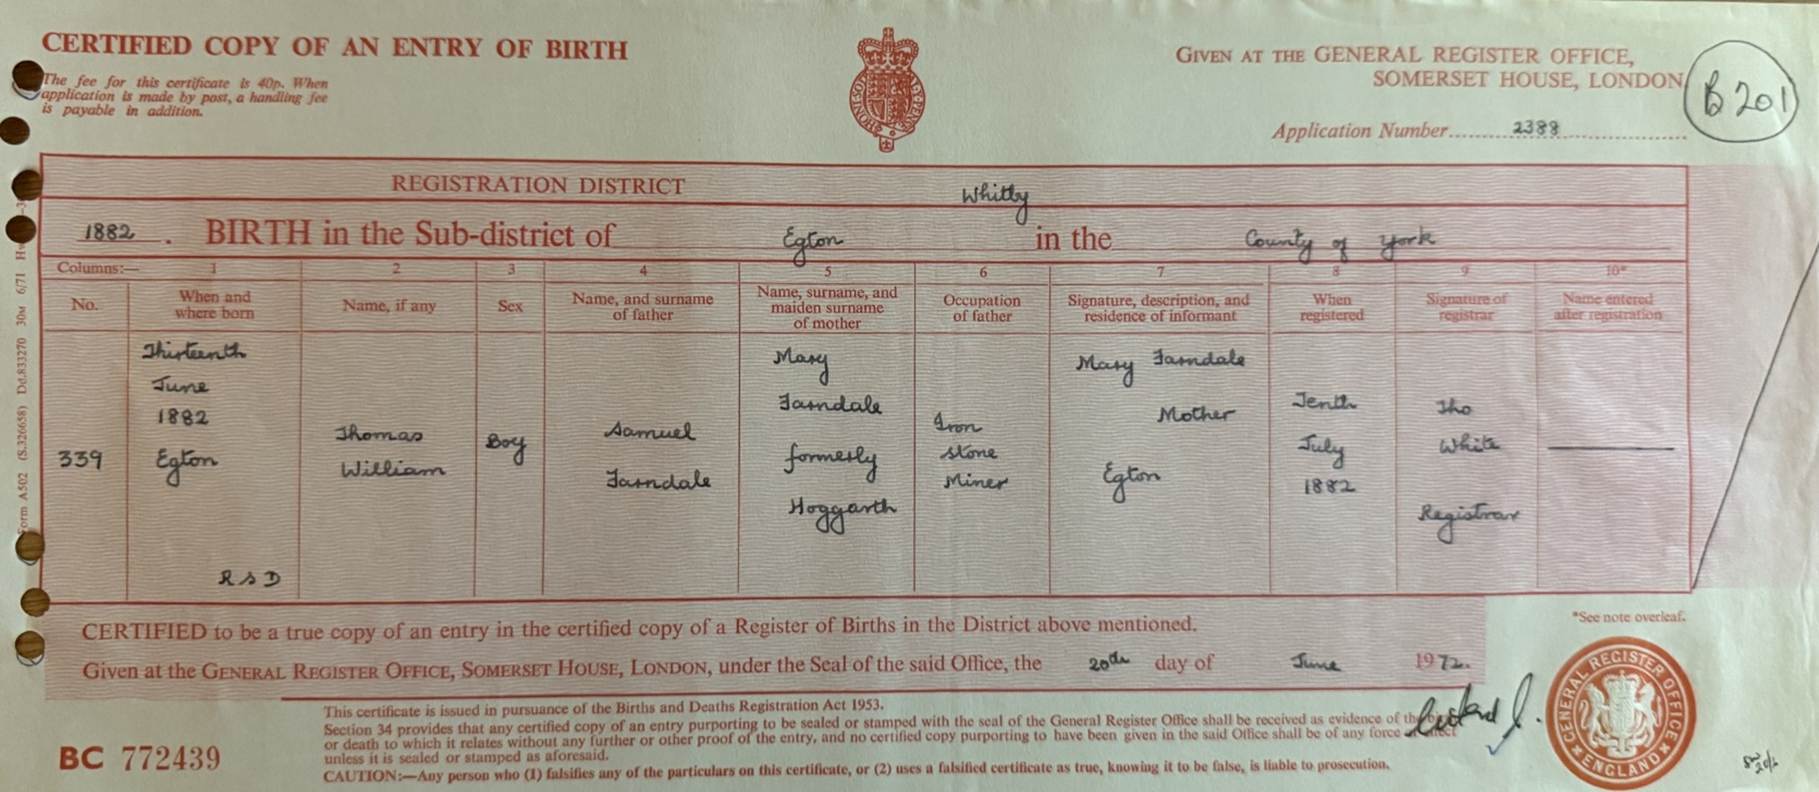 CERTIFIED COPY OF AN ENTRY OF BIRTH
The fee for this certificate is 40p. When
application is made by post, a handling fee
is payable in addition.
GIVEN AT THE GENERAL REGISTER OFFICE,
SOMERSET HOUSE, LONDON
Application Number 2388
B 201
REGISTRATION DISTRICT Whitby
1882. BIRTH in the Sub-district of Egton in the County of York
Columns:— 1 2 3 4 5 6 7 8 9 10*
No. | When and where born | Name, if any | Sex | Name, and surname of father | Name, surname, and maiden surname of mother | Occupation of father | Signature, description, and residence of informant | When registered | Signature of registrar | Name entered after registration
339 | Thirteenth June 1882 Egton | Thomas William | Boy | Samuel Farndale | Mary Farndale formerly Hoggarth | Iron stone Miner | Mary Farndale Mother Egton | Tenth July 1882 | Tho White Registrar
R S D
CERTIFIED to be a true copy of an entry in the certified copy of a Register of Births in the District above mentioned.
*See note overleaf.
Given at the GENERAL REGISTER OFFICE, SOMERSET HOUSE, LONDON, under the Seal of the said Office, the 20th day of June 1972.
This certificate is issued in pursuance of the Births and Deaths Registration Act 1953.
Section 34 provides that any certified copy of an entry purporting to be sealed or stamped with the seal of the General Register Office shall be received as evidence of the
or death to which it relates without any further or other proof of the entry, and no certified copy purporting to have been given in the said Office shall be of any force
unless it is sealed or stamped as aforesaid.
CAUTION:—Any person who (1) falsifies any of the particulars on this certificate, or (2) uses a falsified certificate as true, knowing it to be false, is liable to prosecution.
BC 772439
GENERAL REGISTER OFFICE
ENGLAND
Form A502 (S.326658) Dd.833270 30M 6/71